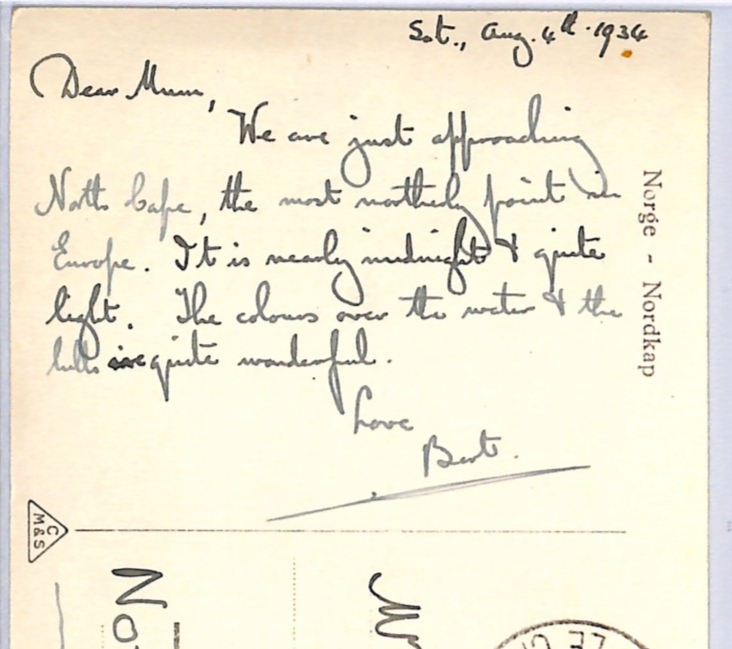 Sat., Aug. 4th. 1934
Dear Mum,
We are just approaching
North Cape, the most northerly point in
Europe. It is nearly midnight & quite
light. The colours over the water & the
hills are quite wonderful.
Love
Bert.
Norge - Nordkap
C
M&S